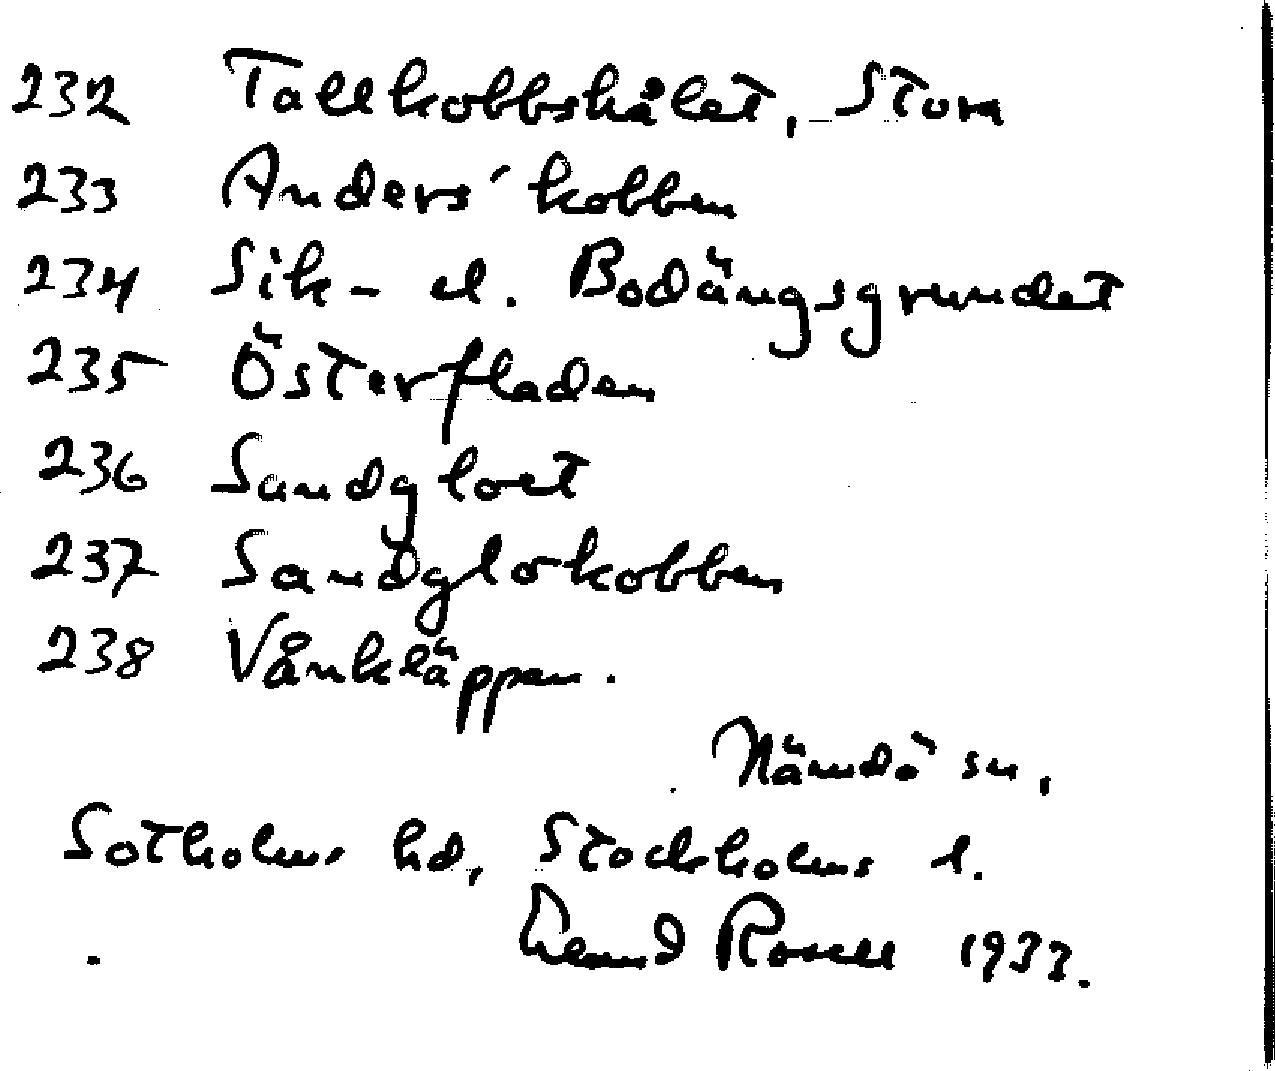 232 Tallkobbshålet, Stora
233 Anders' kobben
234 Sik- el. Bodängsgrundet
235 Österfladen
236 Sandgloet
237 Sandglokobben
238 Vånkläppen.
Nämdö sn,
Sotholms hd, Stockholms l.
Rosell 1933.